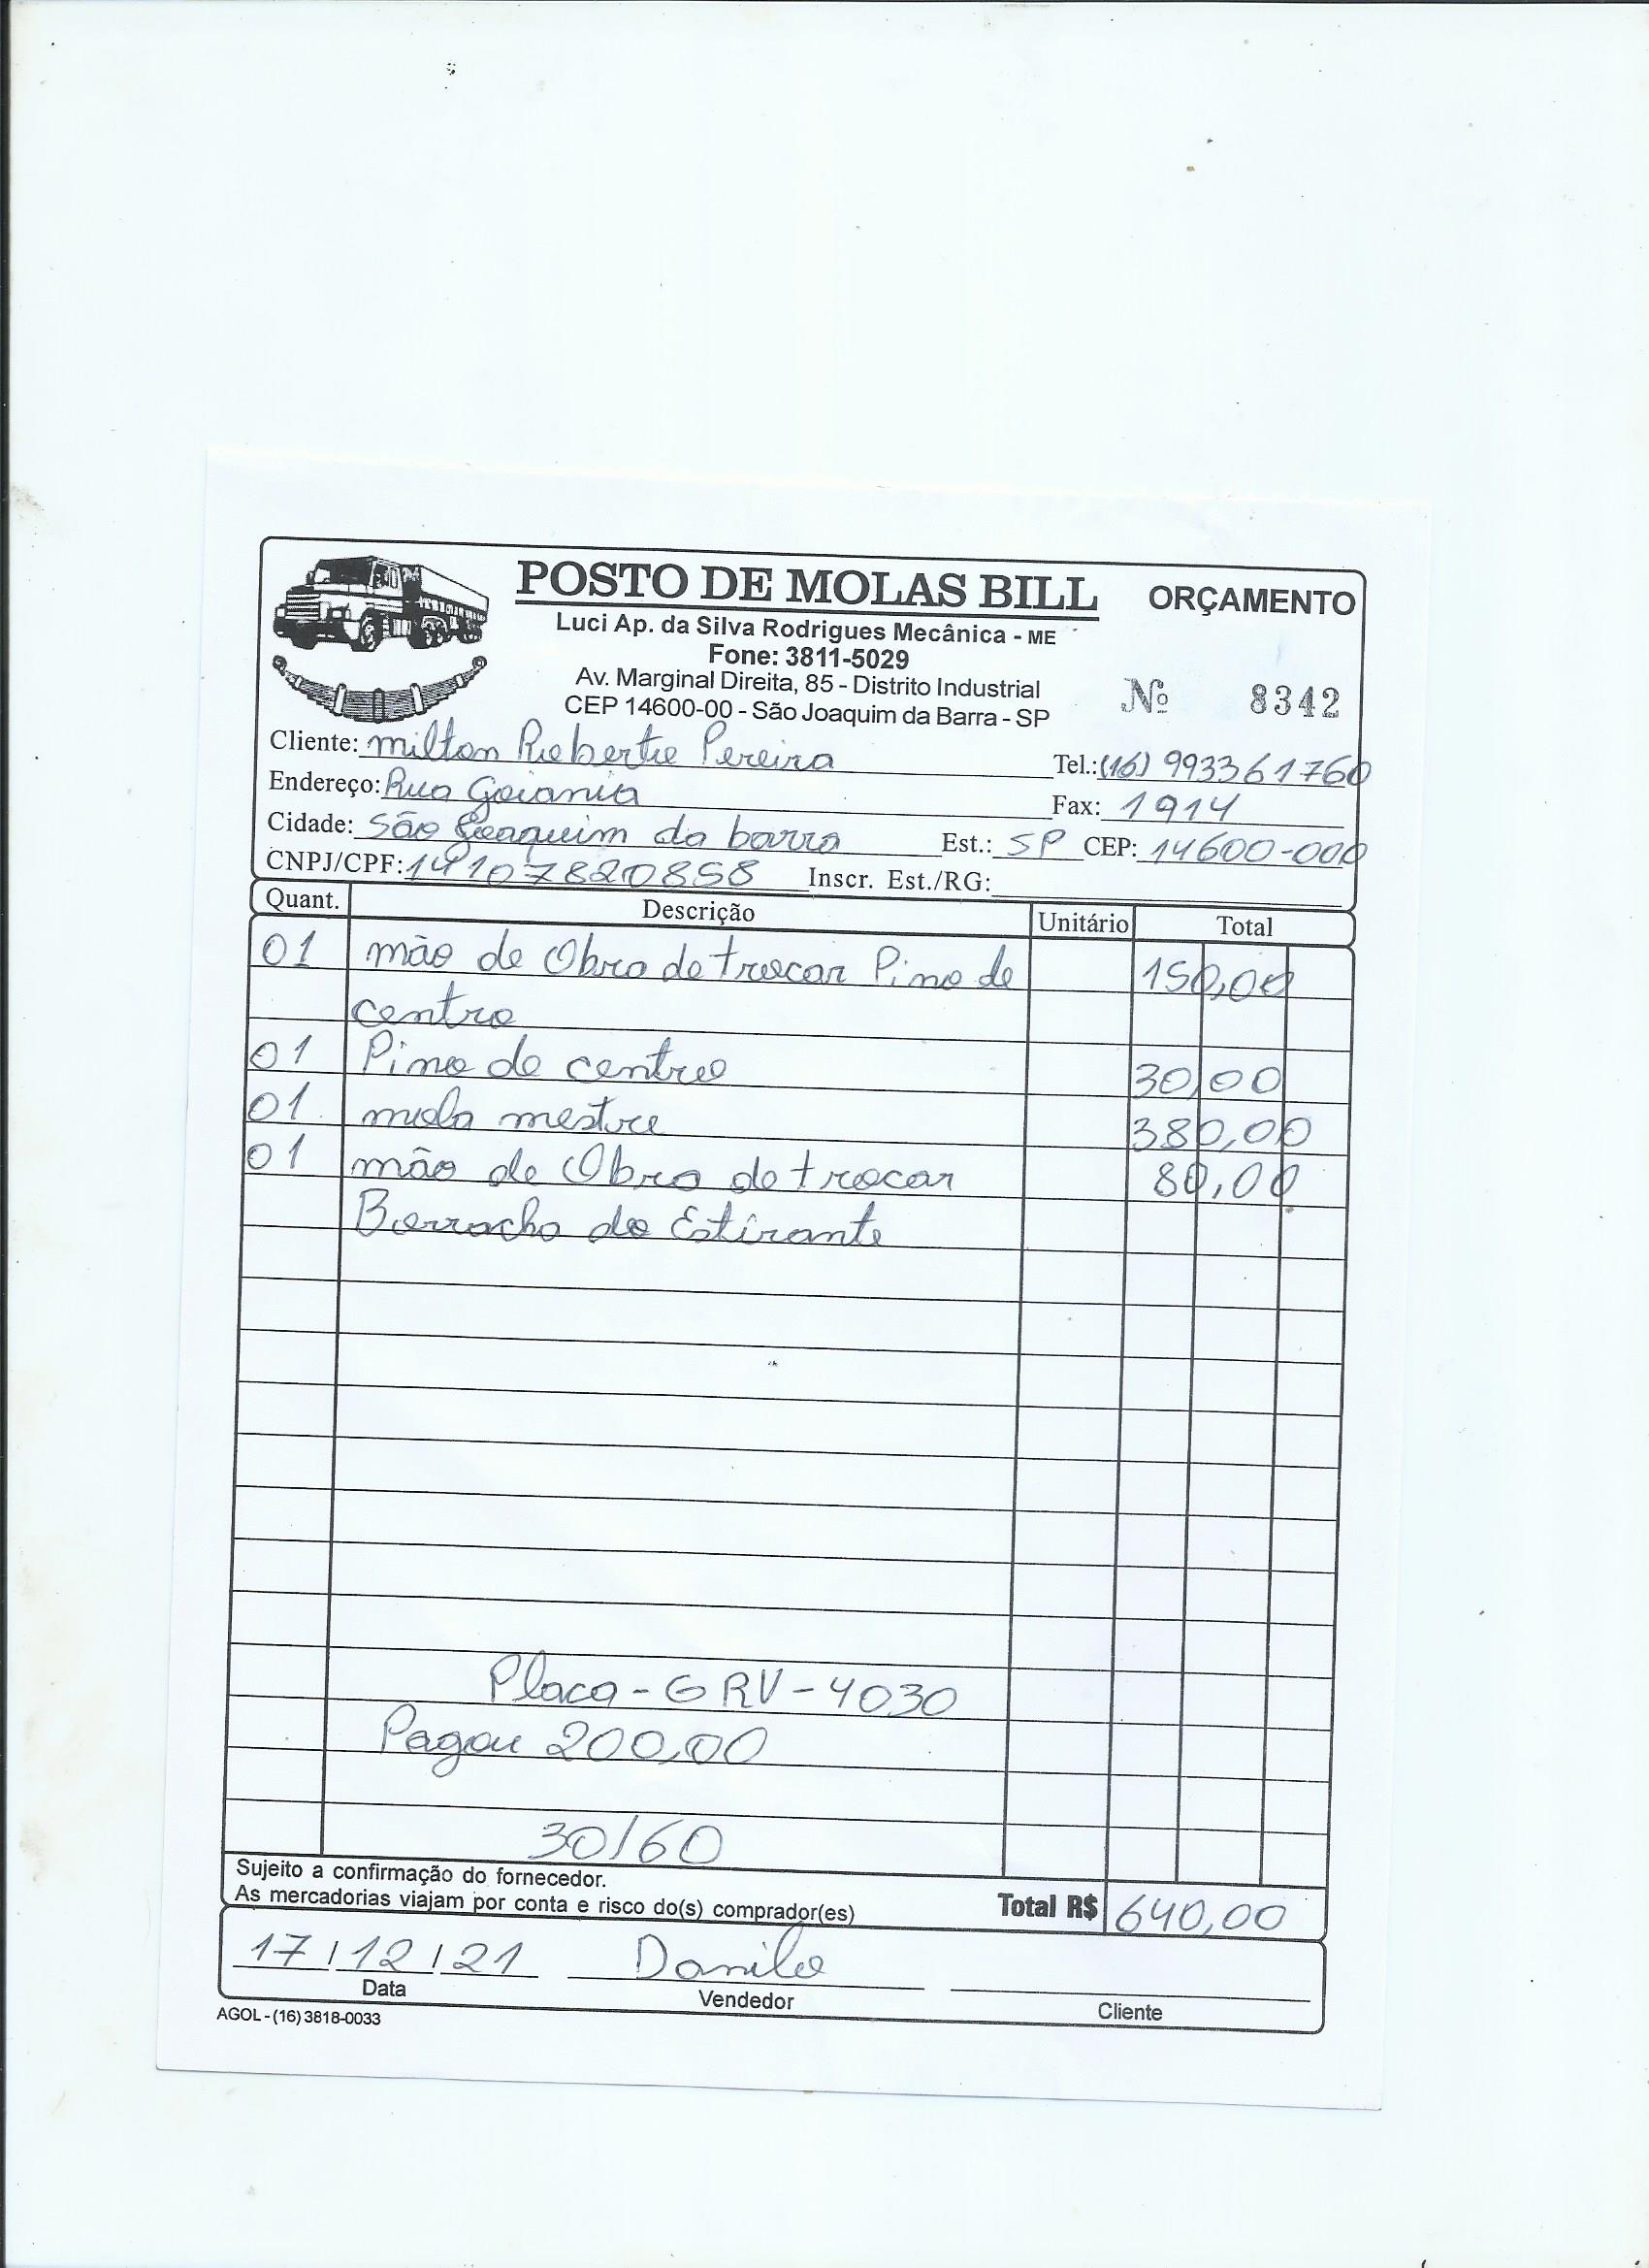 POSTO DE MOLAS BILL ORÇAMENTO
Luci Ap. da Silva Rodrigues Mecânica - ME
Fone: 3811-5029
Av. Marginal Direita, 85 - Distrito Industrial
CEP 14600-00 - São Joaquim da Barra - SP
Nº 8342
Cliente: Milton Roberto Pereira Tel.: (16) 993361760
Endereço: Rua Goiania Fax: 1914
Cidade: São Joaquim da barra Est.: SP CEP: 14600-000
CNPJ/CPF: 14107820858 Inscr. Est./RG:
Quant. Descrição Unitário Total
01 mão de Obra de trocar Pino de 150,00
centro
01 Pino de centro 30,00
01 mola mestre 380,00
01 mão de Obra de trocar 80,00
Borracha do Estirante
Placa - GRV - 4030
Pagou 200,00
30/60
Sujeito a confirmação do fornecedor.
As mercadorias viajam por conta e risco do(s) comprador(es) Total R$ 640,00
17 / 12 / 21 Danilo
Data Vendedor Cliente
AGOL - (16) 3818-0033